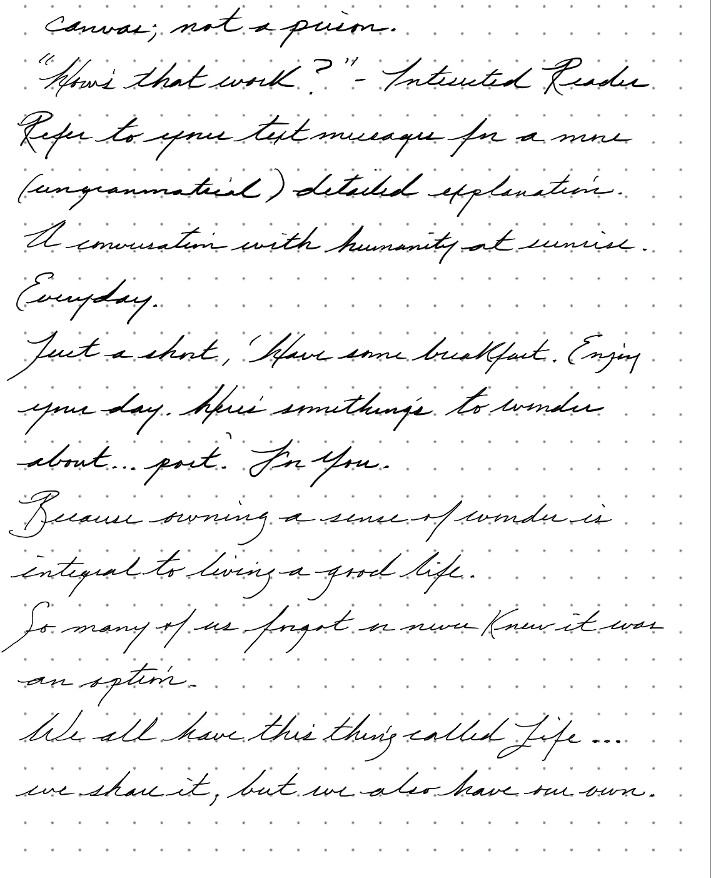 canvas; not a prison.
"How's that work?" - Interested Reader
Refer to your text messages for a more
(ungrammatical) detailed explanation.
A conversation with humanity at sunrise.
Everyday.
Just a short, 'Have some breakfast. Enjoy
your day. Here's something's to wonder
about... post'. For You.
Because owning a sense of wonder is
integral to living a good life.
So many of us forgot or never knew it was
an option.
We all have this thing called Life...
we share it, but we also have our own.